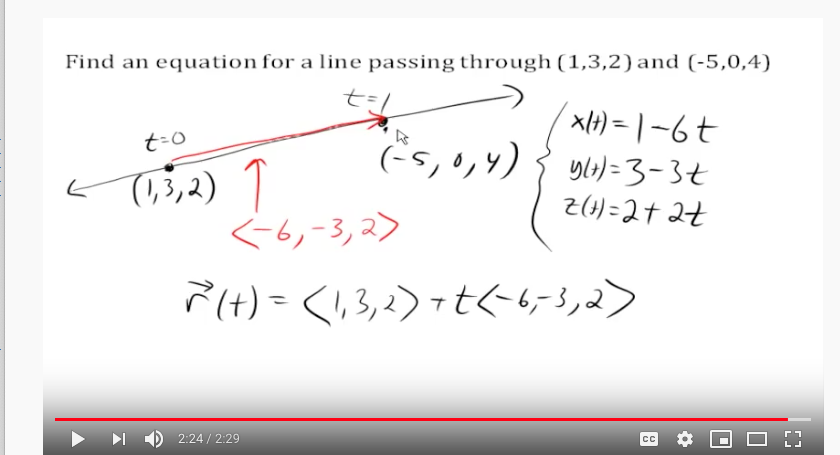 Find an equation for a line passing through (1,3,2) and (-5,0,4)
t=1
t=0
(-5, 0, 4)
(1,3,2)
<-6,-3,2>
x(t)=1-6t
y(t)=3-3t
z(t)=2+2t
r⃗(t) = <1,3,2> + t<-6,-3,2>
2:24 / 2:29
CC